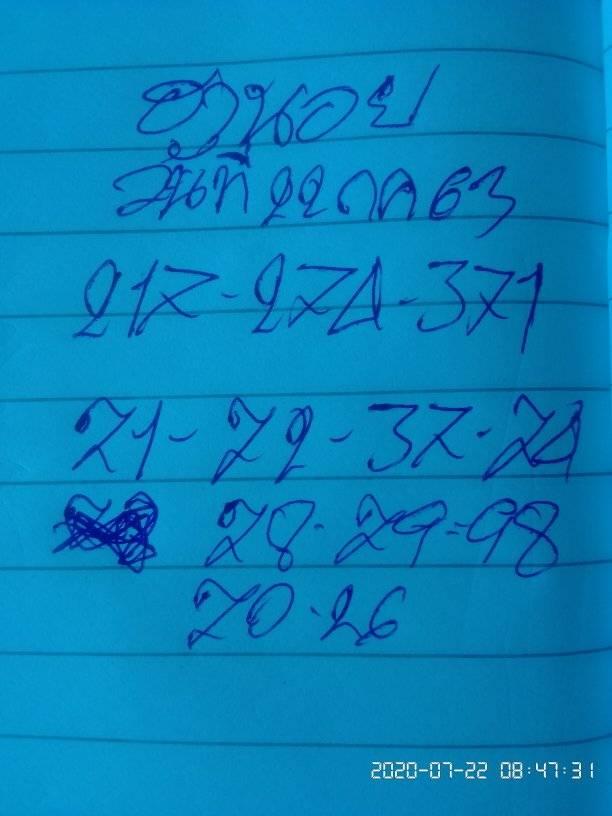 ฮานอย
วันที่ 22 กค 63
217-274-371
71-72-37-74
78-79-98
70-26
2020-07-22 08:47:31